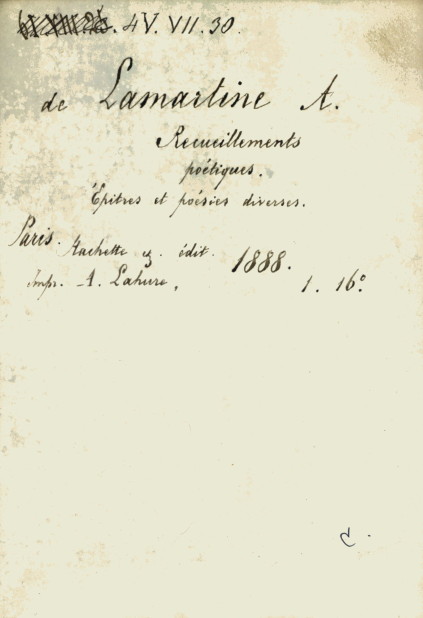 4V. VII. 30.
de Lamartine A.
Recueillements
poétiques.
Épitres et poésies diverses.
Paris. Hachette edit. 1888.
Imp. A. Lahure, 1. 16°.
C.